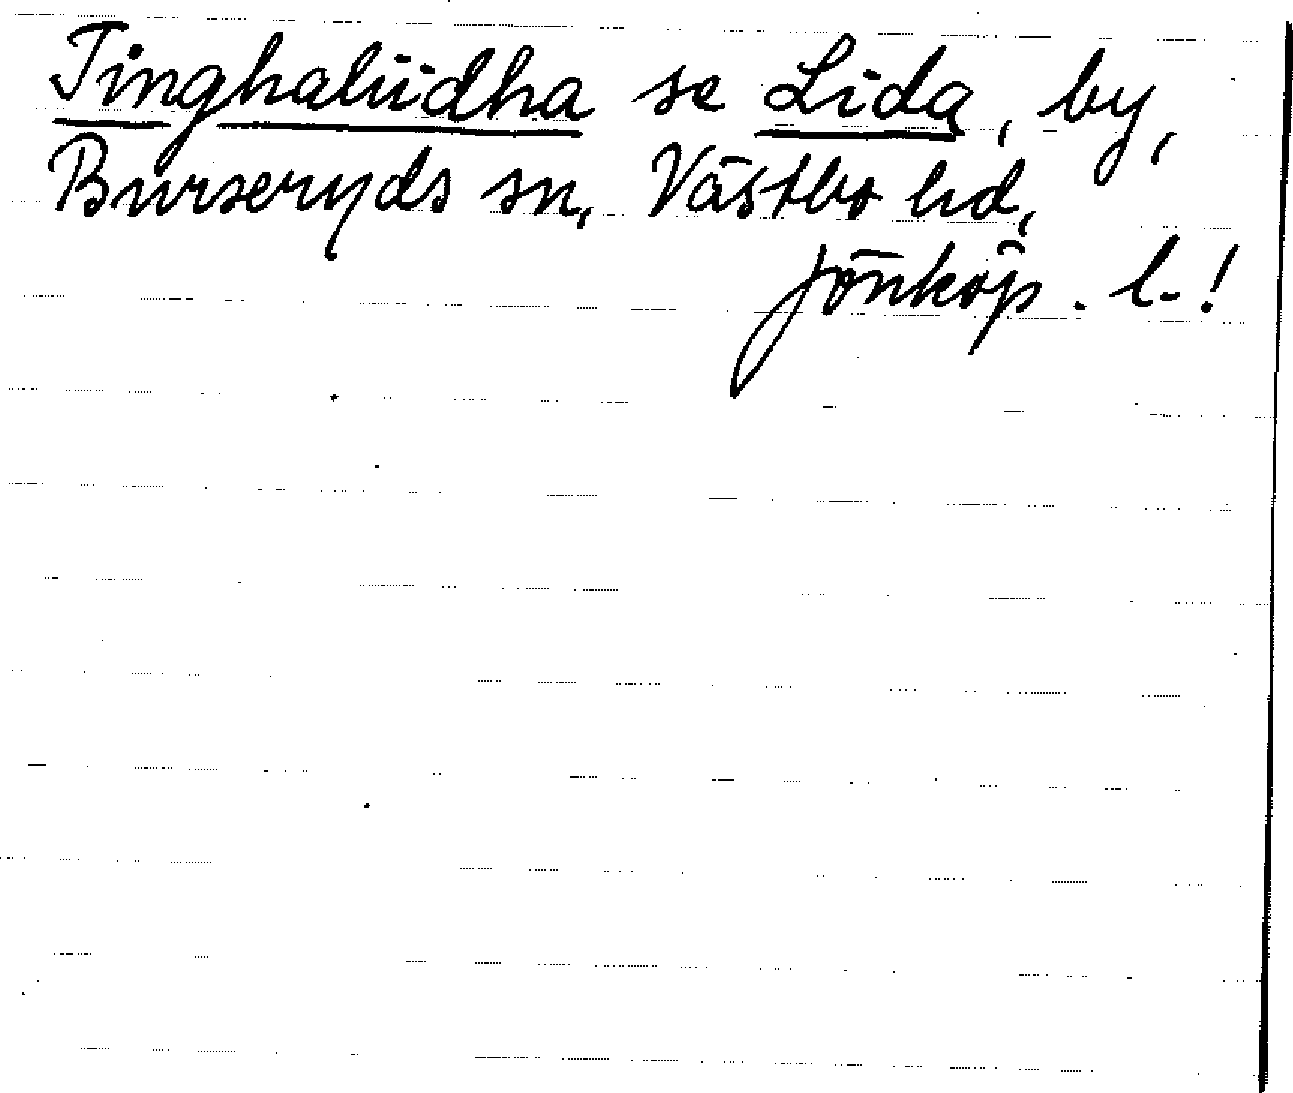 Tinghaliidha se Lida, by,
Burseryds sn, Västbo hd,
Jönköp. l.!